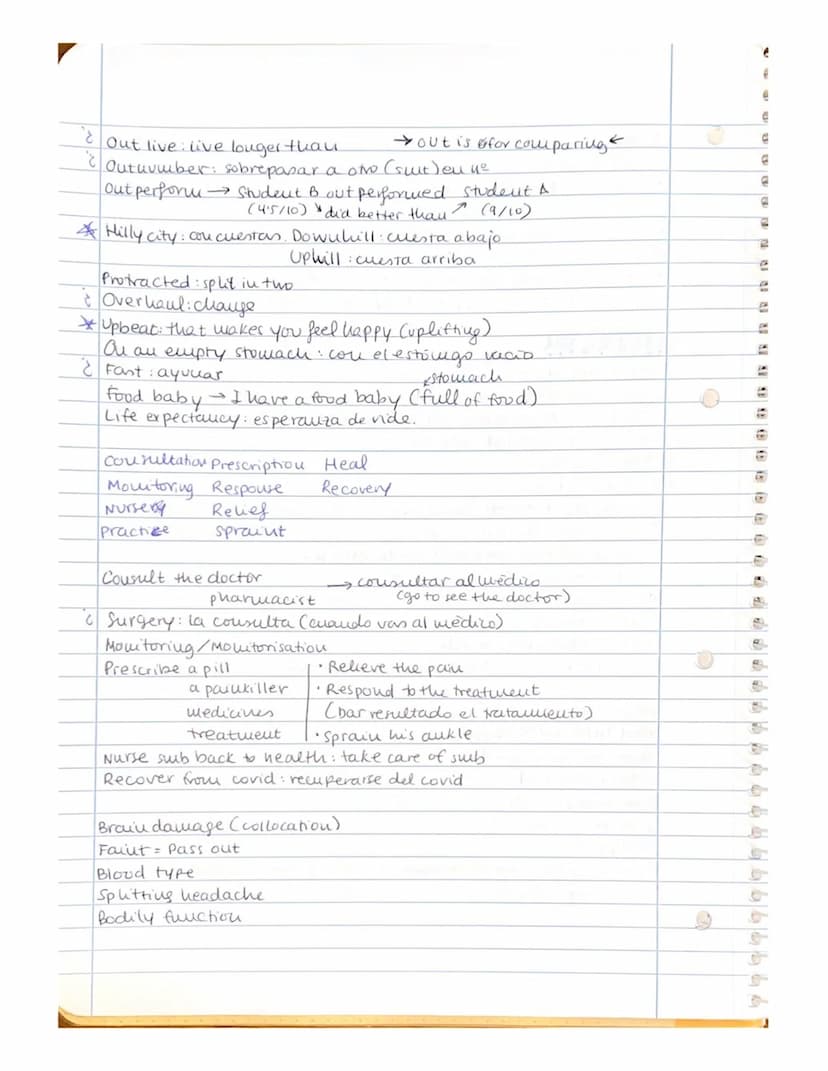 ¿ Out live: live longer than → out is for comparing ←
¿ Outnumber: sobrepasar a otro (smt) en nº
Outperform → Student B outperformed student A
(4'5/10) ↘ did better than ↗ (9/10)
* Hilly city: con cuestas. Downhill: cuesta abajo
Uphill: cuesta arriba
Protracted: split in two
¿ Overhaul: change
* Upbeat: that makes you feel happy (uplifting)
On an empty stomach: con el estómago vacío
¿ Fast: ayunar stomach
Food baby → I have a food baby (full of food)
Life expectancy: esperanza de vide.
Consultation Prescription Heal
Monitoring Response Recovery
Nursery Relief
Practice spraint
Consult the doctor → consultar al mèdico
pharmacist (go to see the doctor)
¿ Surgery: la consulta (cuando vas al mèdico)
Monitoring/Monitorisation
Prescribe a pill · Relieve the pain
a painkiller · Respond to the treatment
medicines (Dar resultado el tratamiento)
treatment · sprain his ankle
Nurse smb back to health: take care of smb
Recover from covid: recuperarse del covid
Brain damage (collocation)
Faint = Pass out
Blood type
Splitting headache
Bodily function